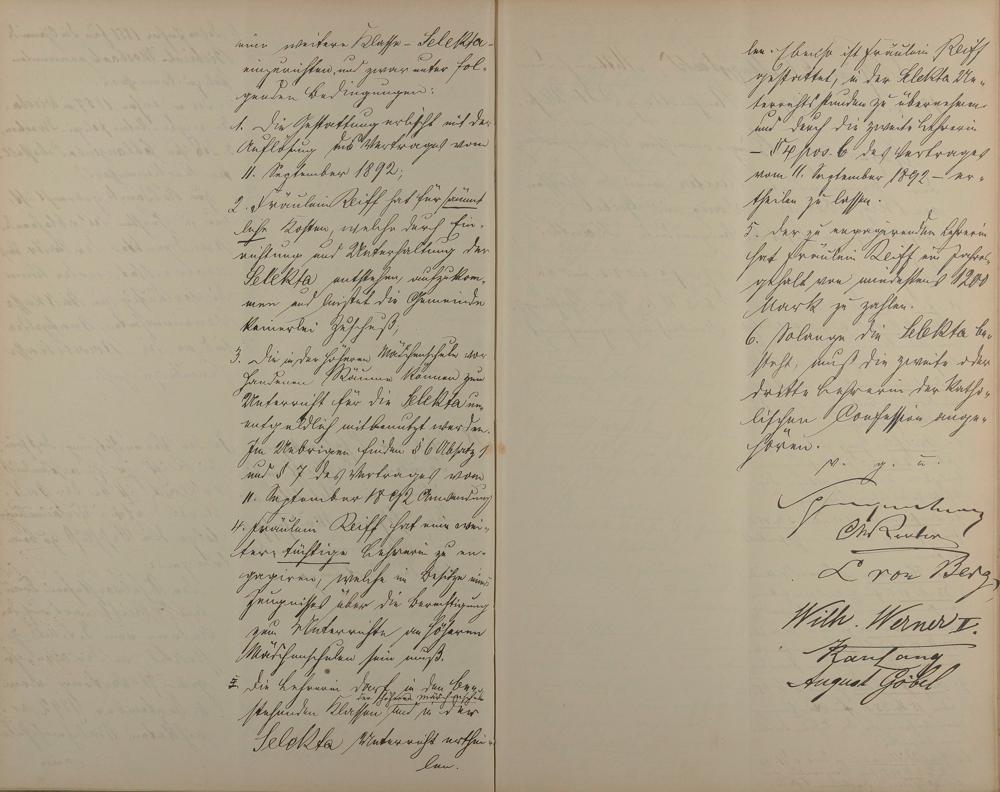 eine weitere Klasse - Selekta -
einzurichten, und zwar unter fol-
genden Bedingungen:
1. Die Gestattung erlischt mit der
Auflösung des Vertrages vom
11. September 1892;
2. Fräulein Reiff hat für sämmt
liche Kosten, welche durch Ein-
richtung und Unterhaltung der
Selekta entstehen, aufzukom-
men und leistet die Gemeinde
keinerlei Zuschuß;
3. Die in der höheren Mädchenschule vor
handenen Räume können zum
Unterricht für die Selekta un-
entgeldlich mitbenutzt werden.
Im Uebrigen finden § 6 Absatz 1
und § 7 des Vertrages vom
11. September 1892 Anwendung
4. Fräulein Reiff hat eine wei-
tere tüchtige Lehrerin zu en-
gagiren, welche im Besitze eines
Zeugnisses über die Berechtigung
zum Unterrichte an höheren
Mädchenschulen sein muß.
Die Lehrerin darf in den be-
der höheren Mädchenschule
stehenden Klassen und in der
Selekta Unterricht erthei-
len.
len. Ebenso ist Fräulein Reiff
gestattet, in der Selekta Un-
terrichtsstunden zu übernehmen
und durch die zweite Lehrerin
- § 4 pos. b des Vertrages
vom 11. September 1892 - er-
theilen zu lassen.
5. Der zu engagirenden Lehrerin
hat Fräulein Reiff ein Jahres
gehalt von mindestens 1200
Mark zu zahlen.
6. Solange die Selekta be-
steht, muß die zweite oder
dritte Lehrerin der katho-
lischen Confession ange-
hören.
v. g. u.
L von Berg
Wilh. Werner II.
August Göbel